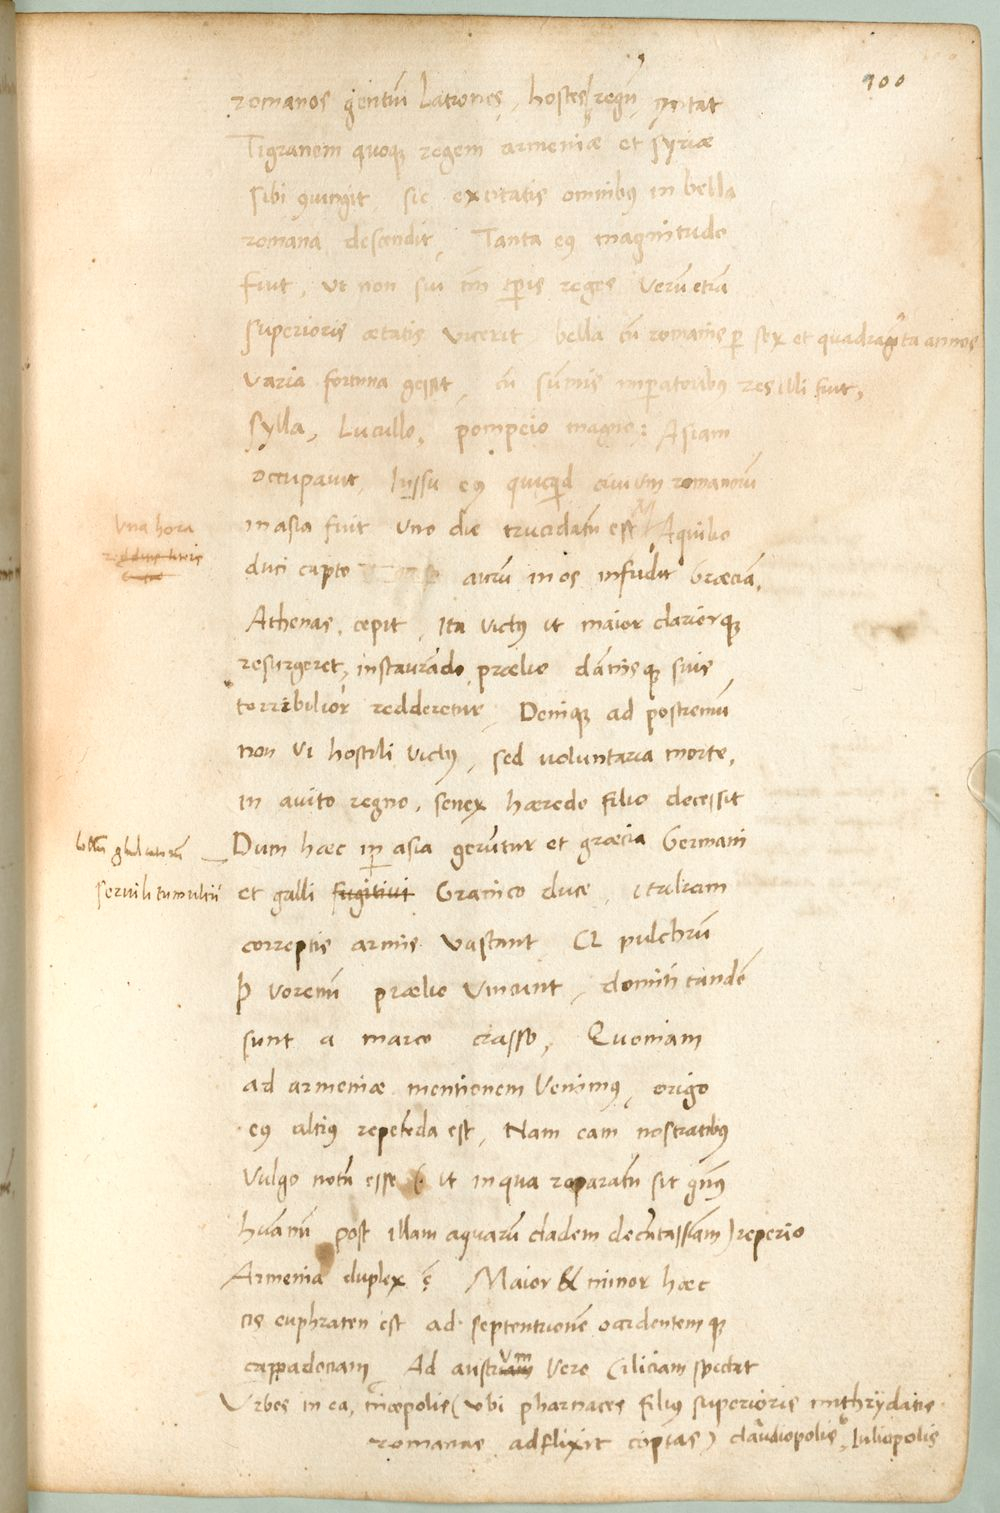 100
romanos gentiũ latrones, hostes regũ putat
Tigranem quoq; regem armeniæ et syriæ
sibi iungit, sic excitatis omnibus in bella
romana descendit, Tanta eius magnitudo
fuit, ut non sui tm̃ tp̃is reges verũ etiã
superioris ætatis vicerit bella cũ romanis p sex et quadraginta annos
varia fortuna gessit, cũ sũmis imp̃atoribus res illi fuit,
Sylla, Lucullo, pompeio magno: Asiam
occupauit, Iussu eius quicquid ciuium romanorũ
in asia fuit uno die trucidatũ est M Aquilio
Una hora
duci capto aurũ in os infudit Græciam,
Athenas, cepit, Ita victus ut maior clariorq;
resurgeret, instaurãdo prælio dãnisque suis
terribilior redderetur, Deniq; ad postremũ
non vi hostili victus, sed voluntaria morte,
in auito regno, senex hærede filio decessit
Dum hæc in asia gerũtur et græcia Germani
seruili tumultu
et galli fugitiui Granico duce, italiam
correptis armis vastant Cl pulchrũ
P vorenũ prælio vincunt, domiti tandẽ
sunt a marco crasso, Quoniam
ad armeniæ mentionem venimus, origo
eius altius repetẽda est, Nam eam nostratibus
vulgo notũ esse (ut in qua reparatũ sit gñus
huanũ post illam aquarũ cladem decãtatissimam) reperio
Armenia duplex ẽ Maior & minor hæc
cis euphraten est ad septentrionẽ occidentemq;
cappadociam, Ad austrum vero Ciliciam spectat
Vrbes in ea, nicopolis (vbi pharnaces filius superioris mithrydatis
romanas adflixit copias) claudiopolis, Iuliopolis